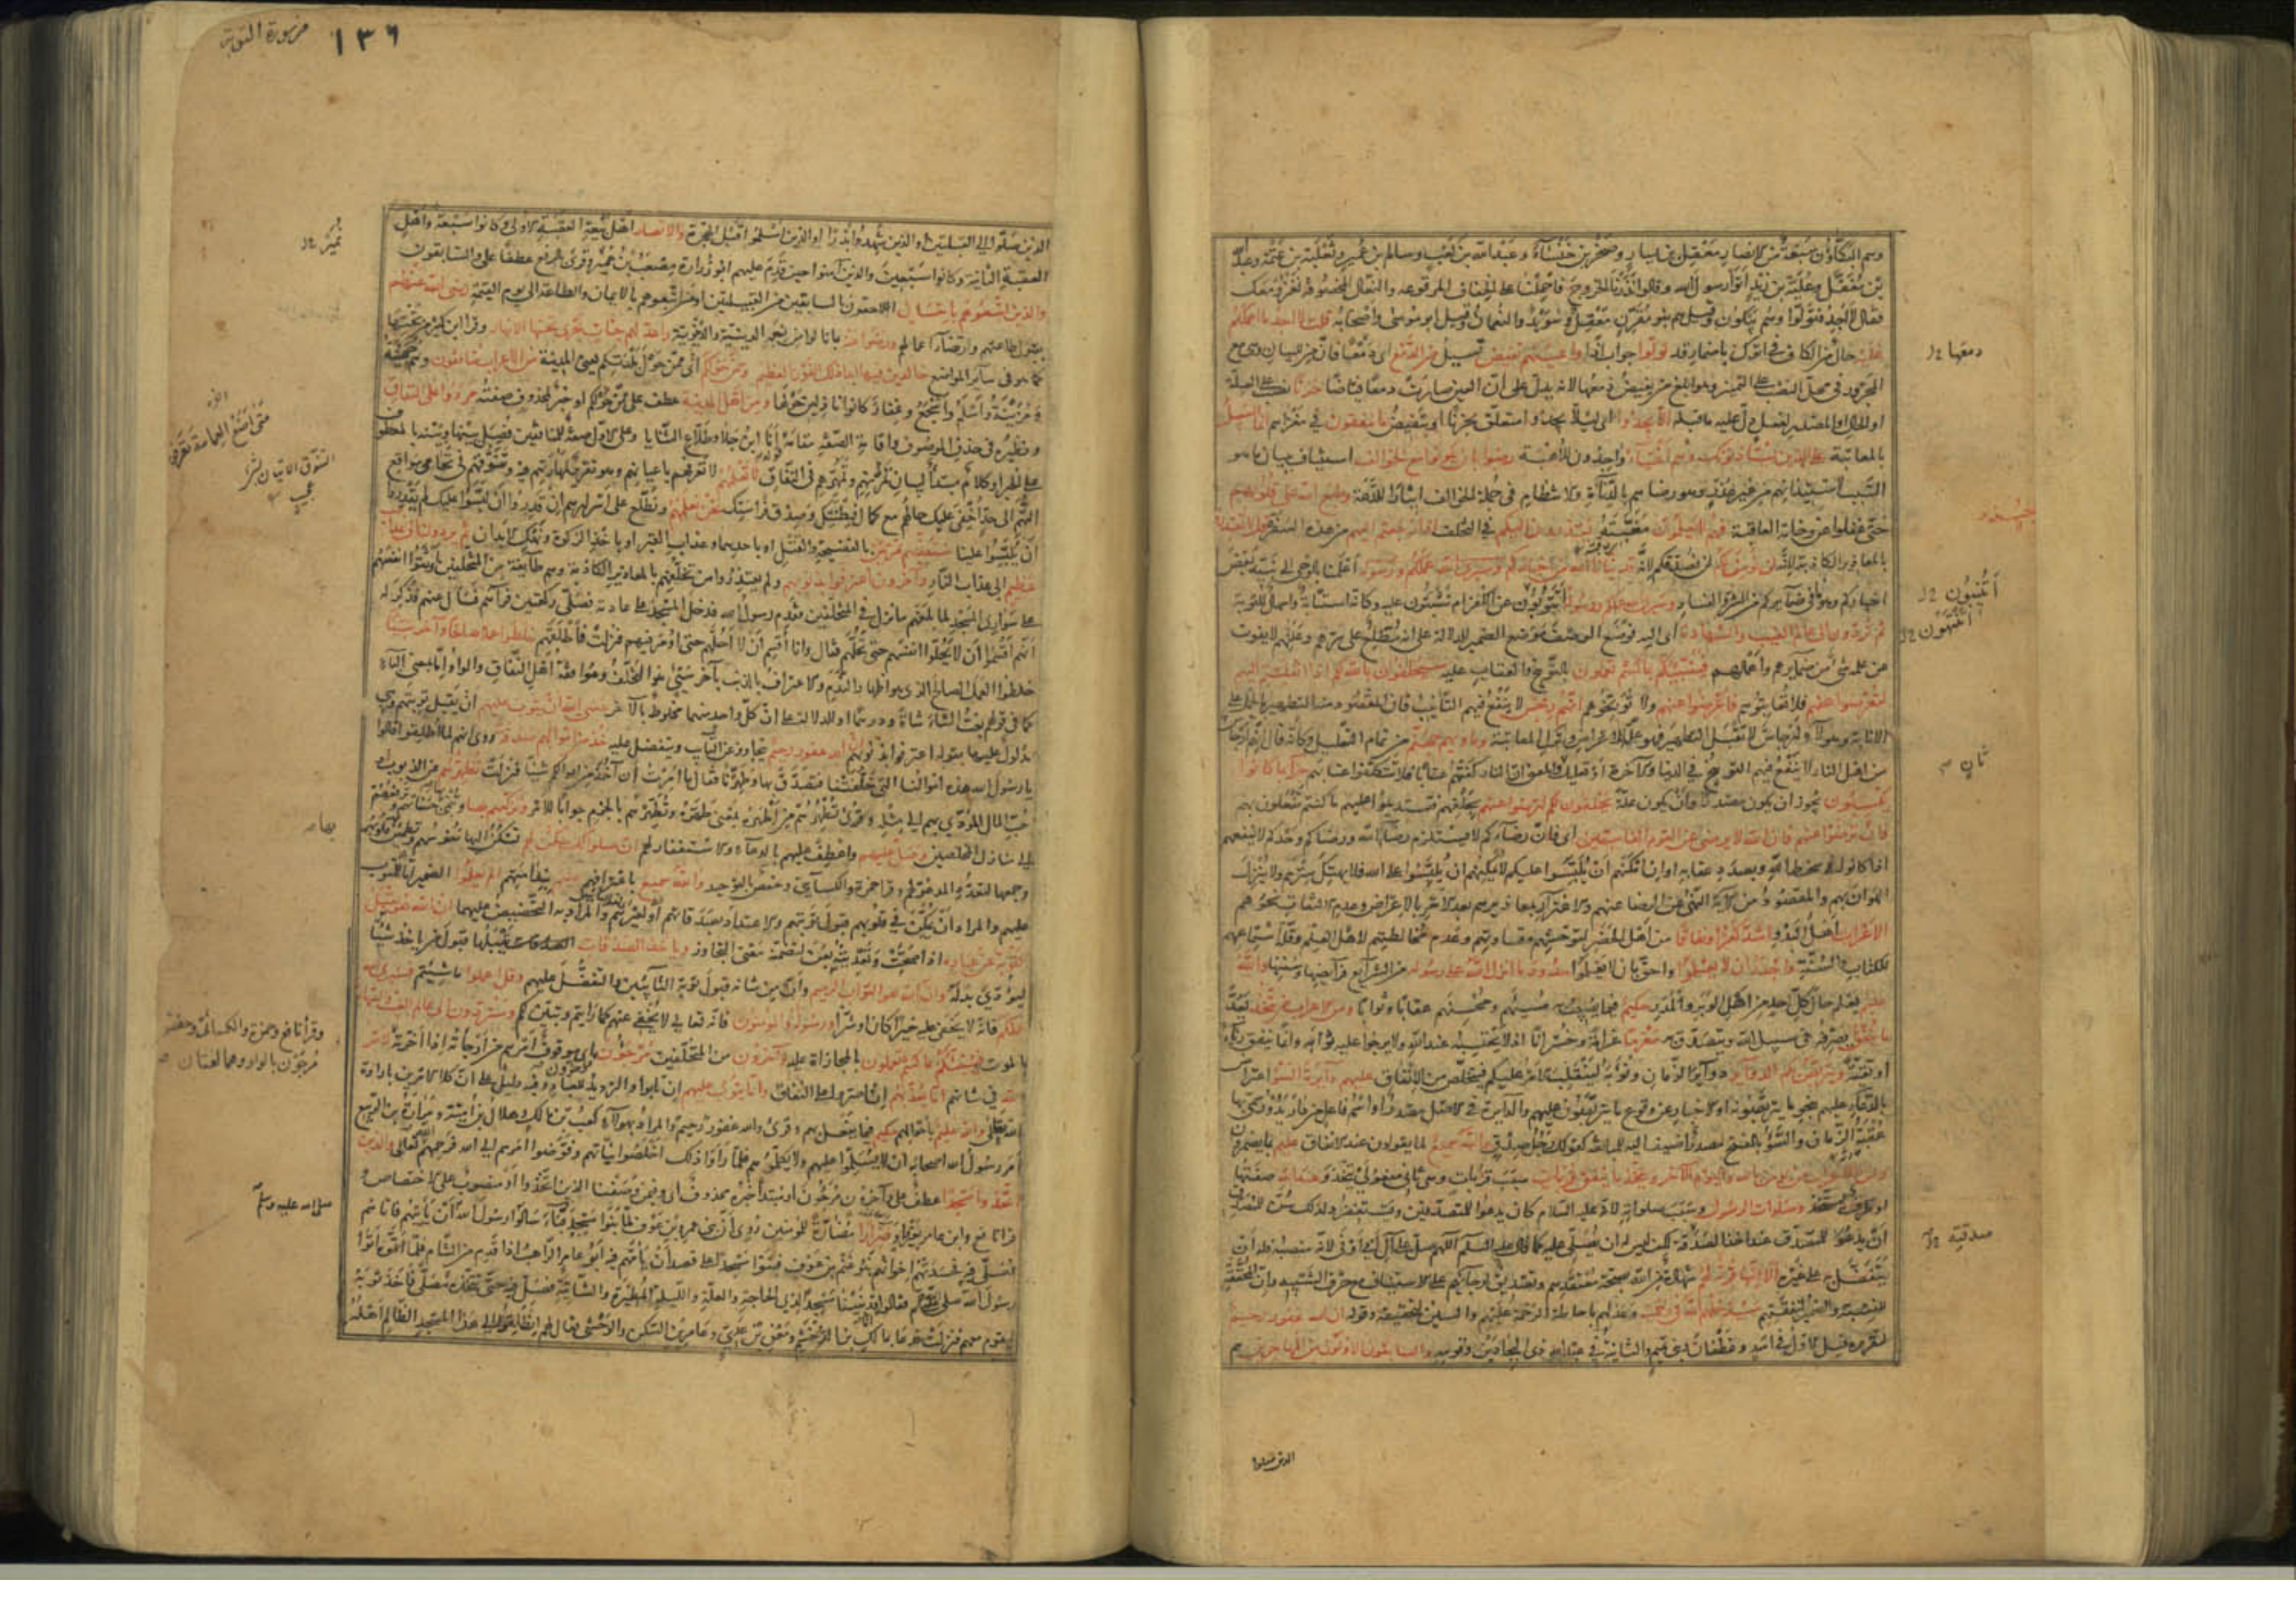 وهم البكاؤن سبعة من الانصار معقل بن يسار وصخر بن خنساء وعبدالله بن كعب وسالم بن عمير وثعلبة بن غنمة وعبدالله
بن مغفل وعلبة بن زيد اتوا رسول الله وقالوا نذرنا الخروج فاحملنا على الخفاف المرقوعة والنعال المخصوفة نغزو معك
فقال لا اجد فتولوا وهم يبكون وقيل هم بنو مقرن معقل وسويد والنعمان وقيل ابو موسى واصحابه قلت لا اجد ما احملكم
عليه حال من الكاف في اتوك باضمار قد تولوا جواب اذا واعينهم تفيض تسيل من الدمع اى دمعا فان من للبيان وهى مع
المجرور في محل النصب على التميز وهو ابلغ من يفيض دمعها لانه يدل على ان العين صارت دمعا فياضا حزنا نصب على العلة
او الحال او المصدر لفعل دل عليه ما قبله الا يجدوا اى لئلا يجدوا متعلق بحزنا او بتفيض ما ينفقون في مغزاهم انما السبيل
بالمعاتبة على الذين يستأذنونك وهم اغنياء واجدون للاهبة رضوا بان يكونوا مع الخوالف استيناف لبيان ما هو
السبب لاستيذانهم من غير عذر وهو رضاهم بالدناءة والانتظام في جملة الخوالف ايثارا للدعة وطبع الله على قلوبهم
حتى غفلوا عن وخامة العاقبة فهم لا يعلمون مغبته يعتذرون اليكم في التخلف اذا رجعتم اليهم من هذه السفرة قل لا تعتذروا
بالمعاذير الكاذبة لانه لن نؤمن لكم لن نصدقكم لانه قد نبأنا الله من اخباركم اعلمنا بالوحى الى نبيه بعض
اخباركم وهو ما في ضمائركم من الشر والفساد وسيرى الله عملكم ورسوله أتتوبون عن الكفر ام تثبتون عليه وكانه استتابة وامهال للتوبة
ثم تردون الى عالم الغيب والشهادة اى اليه فوضع الوصف موضع الضمير للدلالة على انه مطلع على سرهم وعلنهم لا يفوت
عن علمه شئ من ضمايرهم واعمالهم فينبئكم بما كنتم تعملون بالتوبيخ والعقاب عليه سيحلفون بالله لكم اذا انقلبتم اليهم
لتعرضوا عنهم فلا تعاتبوهم فاعرضوا عنهم ولا توبخوهم انهم رجس لا ينفع فيهم التأنيب فان المقصود منه التطهير بالحمل على
الانابة وهؤلاء ارجاس لا تقبل التطهير فهو علة الاعراض وترك المعاتبة ومأويهم جهنم من تمام التعليل وكانه قال انهم ارجاس
من اهل النار لا ينفع فيهم التوبيخ في الدنيا والاخرة او تعليل ثان والمعنى ان النار كفتهم عتابا فلا تتكلفوا عتابهم جزاء بما كانوا
يكسبون يجوز ان يكون مصدرا وان يكون علة يحلفون لكم لترضوا عنهم بحلفهم فتستديموا عليهم ما كنتم تفعلون بهم
فان ترضوا عنهم فان الله لا يرضى عن القوم الفاسقين اى فان رضاءكم لا يستلزم رضاء الله ورضاكم وحدكم لا ينفعهم
اذا كانوا في سخط الله وبصدد عقابه او ان تمكنهم ان يلبسوا عليكم لا يمكنهم ان يلبسوا على الله فلا يهتك سترهم ولا ينزل
الهوان بهم والمقصود من الآية النهى عن الرضا عنهم والاغترار بمعاذيرهم بعد الامر بالاعراض وعدم الالتفات نحوهم
الاعراب اهل البدو اشد كفرا ونفاقا من اهل الحضر لتوحشهم وقساوتهم وعدم مخالطتهم لاهل العلم وقلة استماعهم
للكتاب والسنة واجدر ان لا يعلموا واحق بان لا يعلموا حدود ما انزل الله على رسوله من الشرايع فرائضها وسننها والله
عليم يعلم حال كل احد من اهل الوبر والمدر حكيم فيما يصيب به مسيئهم ومحسنهم عقابا وثوابا ومن الاعراب من يتخذ يعد
ما ينفق يصرفه في سبيل الله ويتصدق به مغرما غرامة وخسرانا اذ لا يحتسبه عند الله ولا يرجوا عليه ثوابا وانما ينفق رياء
او تقية ويتربص بكم الدوائر دوائر الزمان ونوبه لينقلب الامر عليكم فيتخلص من الانفاق عليهم دائرة السوء اعتراض
بالدعاء عليهم بنحو ما يتربصونه او الاخبار عن وقوع ما يتربصون عليهم والدائرة في الاصل مصدر او اسم فاعل من دار يدور سمى بها
عقبة الزمان والسوء بالفتح مصدر اضيف اليه للمبالغة كقولك رجل صدق والله سميع لما يقولون عند الانفاق عليم بما يضمرون
ومن الاعراب من يؤمن بالله واليوم الآخر ويتخذ ما ينفق قربات سبب قربات وهى ثانى مفعولى يتخذ وعند الله صفتها
او ظرف ليتخذ وصلوات الرسول وسبب صلواته لانه عليه السلام كان يدعوا للمتصدقين ويستغفر لهم ولذلك سن للمصدق
ان يدعو للمتصدق عند اخذ الصدقة لكن ليس له ان يصلى عليه كما قال عليه السلم اللهم صل على آل ابى اوفى لانه منصبه فله ان
يتفضل به على غيره الا انها قربة لهم شهادة من الله بصحة معتقدهم وتصديق لرجائهم على الاستيناف مع حرف التنبيه وان المحققة
للنسبة والضمير لنفقتهم سيدخلهم الله في رحمته وعد لهم باحاطة الرحمة عليهم والسين لتحقيقه وقوله ان الله غفور رحيم
لتقريره قيل الاولى في اسد وغطفان وبنى تميم والثانية في عبدالله ذى البجادين وقومه والسابقون الاولون من المهاجرين هم
دمعها
ثان
صدقته
الذين صلوا
من سورة التوبة
١٣٦
الذين صلوا الى القبلتين او الذين شهدوا بدرا او الذين اسلموا قبل الهجرة والانصار اهل بيعة العقبة الاولى وكانوا سبعة واهل
العقبة الثانية وكانوا سبعين والذين آمنوا حين قدم عليهم ابو زرارة مصعب بن عمير وقرئ بالرفع عطفا على والسابقون
والذين اتبعوهم باحسان اللاحقون بالسابقين من القبيلتين او من اتبعوهم بالايمان والطاعة الى يوم القيمة رضى الله عنهم
بقبول طاعتهم وارتضاء اعمالهم ورضوا عنه بما نالوا من نعمه الدينية والدنيوية واعد لهم جنات تجرى تحتها الانهار وقرأ ابن كثير من تحتها
كما هو في سائر المواضع خالدين فيها ابدا ذلك الفوز العظيم وممن حولكم اى ممن حول بلدتكم يعنى المدينة من الاعراب منافقون وهم جهينة
ومزينة واسلم واشجع وغفار كانوا نازلين حولها ومن اهل المدينة عطف على ممن حولكم او خبر لمحذوف صفته مردوا على النفاق
ونظيره في حذف الموصوف واقامة الصفة مقامه انا ابن جلا وطلاع الثنايا وعلى الاول صفة للمنافقين فصل بينها وبينه بالمعطوف
على الخبر او كلام مبتدأ لبيان تمرنهم وتمهرهم في النفاق لا تعلمهم لا تعرفهم باعيانهم وهو تقرير لمهارتهم فيه وتنوقهم في تحامى مواقع
التهم الى حد اخفى عليك حالهم مع كمال فطنتك وصدق فراستك نحن نعلمهم ونطلع على اسرارهم ان قدروا ان يلبسوا عليك لم يقدروا
ان يلبسوا علينا سنعذبهم مرتين بالفضيحة والقتل او باحديهما وعذاب القبر او باخذ الزكوة ونهك الابدان ثم يردون الى عذاب
عظيم الى عذاب النار وآخرون اعترفوا بذنوبهم ولم يعتذروا من تخلفهم بالمعاذير الكاذبة وهم طائفة من المتخلفين اوثقوا انفسهم
على سوارى المسجد لما بلغهم ما نزل في المتخلفين فقدم رسول الله فدخل المسجد على عادته فصلى ركعتين فرآهم فسأل عنهم فذكر له
انهم اقسموا ان لا يحلوا انفسهم حتى تحلهم فقال وانا اقسم ان لا احلهم حتى اومر فيهم فنزلت فاطلقهم خلطوا عملا صالحا وآخر سيئا
خلطوا العمل الصالح الذى هو اظهار الندم والاعتراف بالذنب بآخر سيئ هو التخلف وموافقة اهل النفاق والواو اما بمعنى الباء
كما في قولهم بعت الشاء شاة ودرهما او للدلالة على ان كل واحد منهما مخلوط بالآخر عسى الله ان يتوب عليهم ان يقبل توبتهم وهى
مدلول عليها بقوله اعترفوا بذنوبهم ان الله غفور رحيم يتجاوز عن التائب ويتفضل عليه خذ من اموالهم صدقة روى انهم لما اطلقوا قالوا
يا رسول الله هذه اموالنا التى خلفتنا فتصدق بها وطهرنا فقال ما امرت ان آخذ من اموالكم شيئا فنزلت تطهرهم من الذنوب او
حب المال المؤدى بهم الى مثله وقرئ تطهرهم من اطهره بمعنى طهره وتطهرهم بالجزم جوابا للامر وتزكيهم بها وتنمى بها حسناتهم وترفعهم
الى منازل المخلصين وصل عليهم واعطف عليهم بالدعاء والاستغفار لهم ان صلواتك سكن لهم تسكن اليها نفوسهم وتطمئن قلوبهم
وجمعها لتعدد المدعو لهم وقرأ حمزة والكسائى وحفص بالتوحيد والله سميع باعترافهم عليم بندامتهم الم يعلموا الضمير اما للمتوب
عليهم والمراد ان يمكن في قلوبهم قبول توبتهم والاعتداد بصدقاتهم او لغيرهم والمراد به التحضيض عليهما ان الله هو يقبل
التوبة عن عباده اذا صحت وتعديته بعن لتضمنه معنى التجاوز ويأخذ الصدقات يقبلها قبول من يأخذ شيئا
ليؤدى بدله وان الله هو التواب الرحيم وان من شأنه قبول توبة التائبين والتفضل عليهم وقل اعملوا ما شئتم فسيرى الله
عملكم فانه لا يخفى عليه خيرا كان او شرا ورسوله والمؤمنون فانه تعالى لا يخفى عنهم كما رايتم وتبين لكم وستردون الى عالم الغيب والشهادة
بالموت فينبئكم بما كنتم تعملون بالمجازاة عليه وآخرون من المتخلفين مرجؤن مؤخرون اى موقوف امرهم من ارجأته اذا اخرته لامر
الله في شانهم اما يعذبهم ان اصروا على النفاق واما يتوب عليهم ان تابوا والترديد للعباد وفيه دليل على ان كلا الامرين بارادة
الله تعالى والله عليم باحوالهم حكيم فيما يفعل بهم وقرئ والله غفور رحيم والمراد بهؤلاء كعب بن مالك وهلال بن امية ومرارة بن الربيع
امر رسول الله اصحابه ان لا يسلموا عليهم ولا يكلموهم فلما رأوا ذلك اخلصوا نياتهم وفوضوا امرهم الى الله فرحمهم الله تعالى والذين
اتخذوا مسجدا عطف على وآخرون مرجون او مبتدأ خبره محذوف اى وفيمن وصفنا الذين اتخذوا او منصوب على الاختصاص و
قرأ نافع وابن عامر بغير واو ضرارا مضارة للمؤمنين روى ان بنى عمرو بن عوف لما بنوا مسجد قباء سألوا رسول الله ان يأتيهم فاتاهم
فصلى فيه فحسدتهم اخوانهم بنو غنم بن عوف فبنوا مسجدا على قصد ان يؤمهم فيه ابو عامر الراهب اذا قدم من الشام فلما اتموه اتوا
رسول الله صلى الله عليه وسلم فقالوا قد بنينا مسجدا لذى الحاجة والعلة والليلة المطيرة والشاتية فصل فيه حتى نتخذه مصلى فاخذ ثوبه
ليقوم معهم فنزلت فدعا مالك بن الدخشم ومعن بن عدى وعامر بن السكن والوحشى فقال لهم انطلقوا الى هذا المسجد الظالم اهله
متى اضع العمامة تعرفونى
وقرأ نافع وحمزة والكسائى وحفص
مرجون بالواو وهما لغتان
صلى الله عليه وسلم